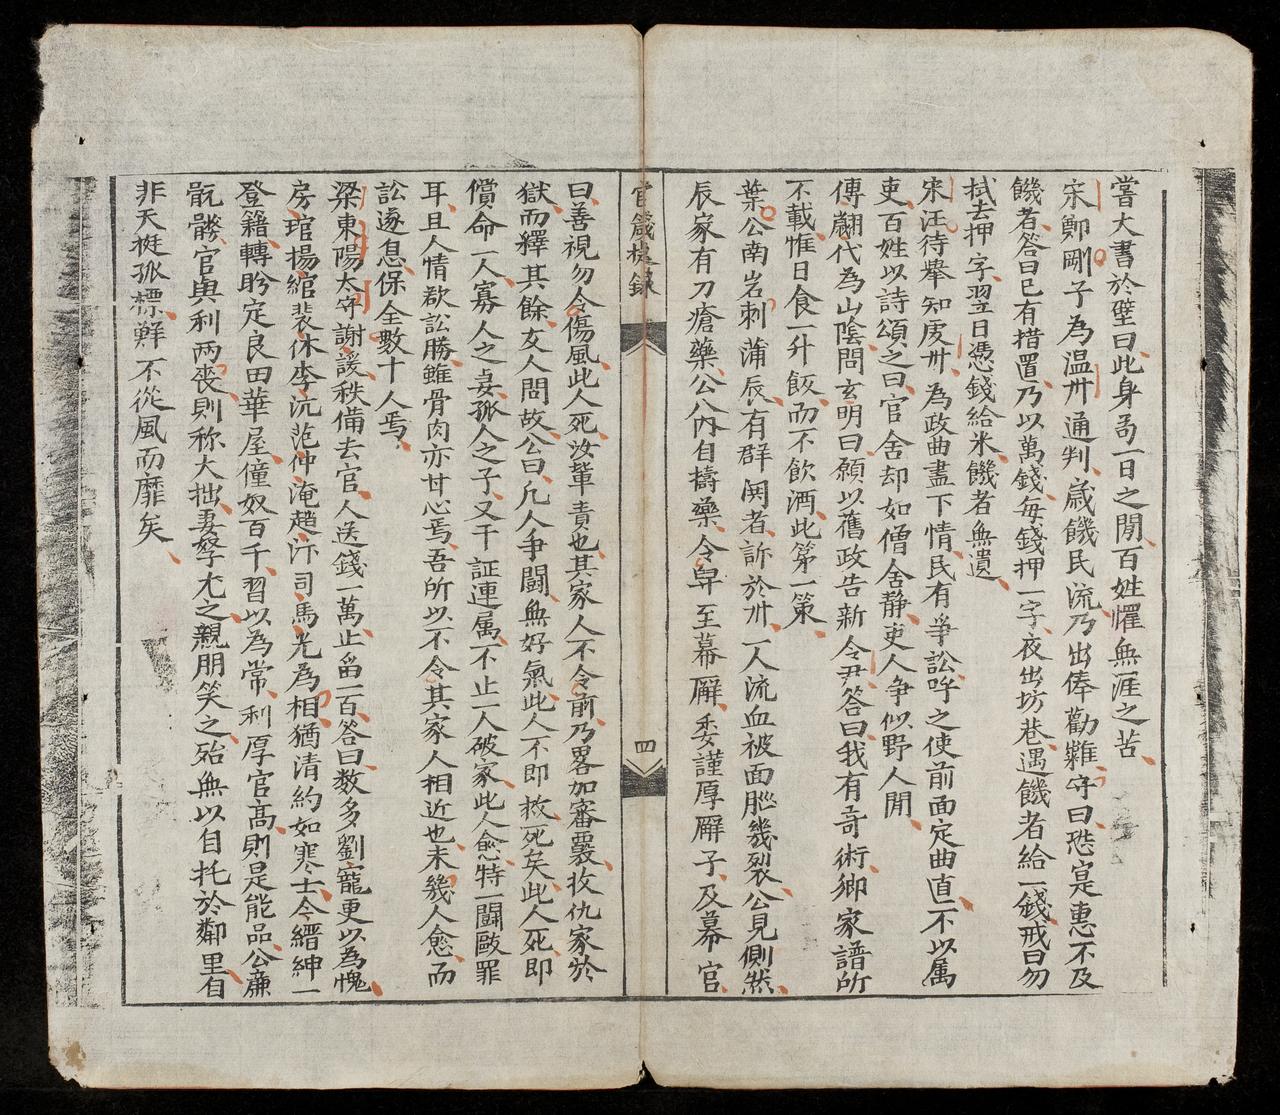 嘗大書於壁曰此身苟一日之閒百姓懼無涯之苦
宋鄭剛子為温州通判歲饑民流乃出俸勸糶守曰恐寔惠不及
饑者答曰已有措置乃以萬錢每錢押一字夜出坊巷遇饑者給一錢戒曰勿
拭去押字翌日憑錢給米饑者無遺
宋汪待舉知䖍州為政曲盡下情民有爭訟呼之使前面定曲直不以属
吏百姓以詩頌之曰官舍却如僧舍静吏人争似野人閒
傅翽代為山陰問玄明曰願以舊政告新令尹答曰我有竒術卿家譜所
不載惟日食一升飯而不飲酒此苐一策
葉公南岩刺蒲辰有群鬨者訴於州一人流血被面腦幾裂公見側然
辰家有刀瘡藥公入内自擣藥令舁至幕廨委謹厚廨子及幕官
官箴
四
曰善視勿令傷風此人死汝軰責也其家人不令前乃畧加審覈收仇家於
獄而釋其餘友人問故公曰凢人争鬪無好氣此人不即救死矣此人死即
償命一人寡人之妻孤人之子又干証連属不止一人破家此人愈特一鬪歐罪
耳且人情欲訟勝雖骨肉亦甘心焉吾所以不令其家人相近也未幾人愈而
訟遂息保全數十人焉
梁東陽太守謝諼秩備去官人送錢一萬止畱一百答曰数多劉寵更以為愧
房琯揚綰裴休李沆范仲淹趙汴司馬光為相猶清約如寒士今縉紳一
登籍轉盻定良田華屋僮奴百千習以為常利厚官髙則是能品公亷
骯髒官與利两喪則称大拙妻孥尤之親朋笑之殆無以自托於鄰里自
非天挺孤標鮮不從風而靡矣